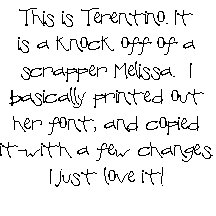 This is Terentino. It
is a knock off of a
scrapper Melissa. I
basically printed out
her font, and copied
it-with a few changes.
I just love it!